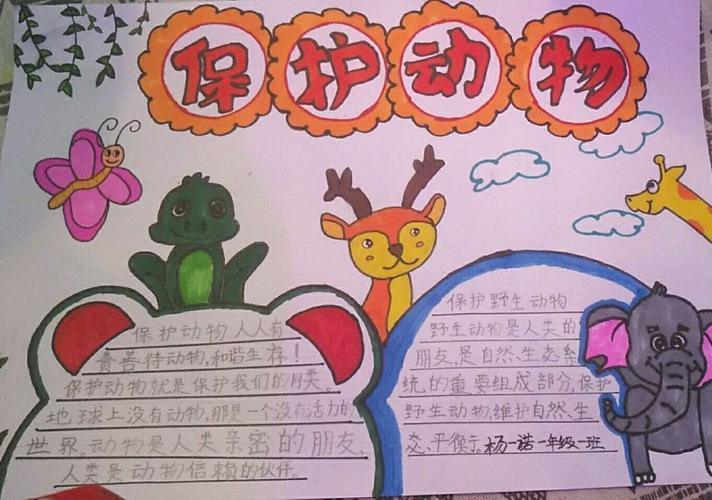 保护动物
保护动物人人有
责善待动物,和谐生存!
保护动物就是保护我们的同类。
地球上没有动物,那是一个没有活力的
世界。动物是人类亲密的朋友、
人类是动物信赖的伙伴。
保护野生动物
野生动物是人类的
朋友,是自然、生态系
统的重要组成部分,保护
野生动物,维护自然、生
态、平衡。杨一诺一年级一班